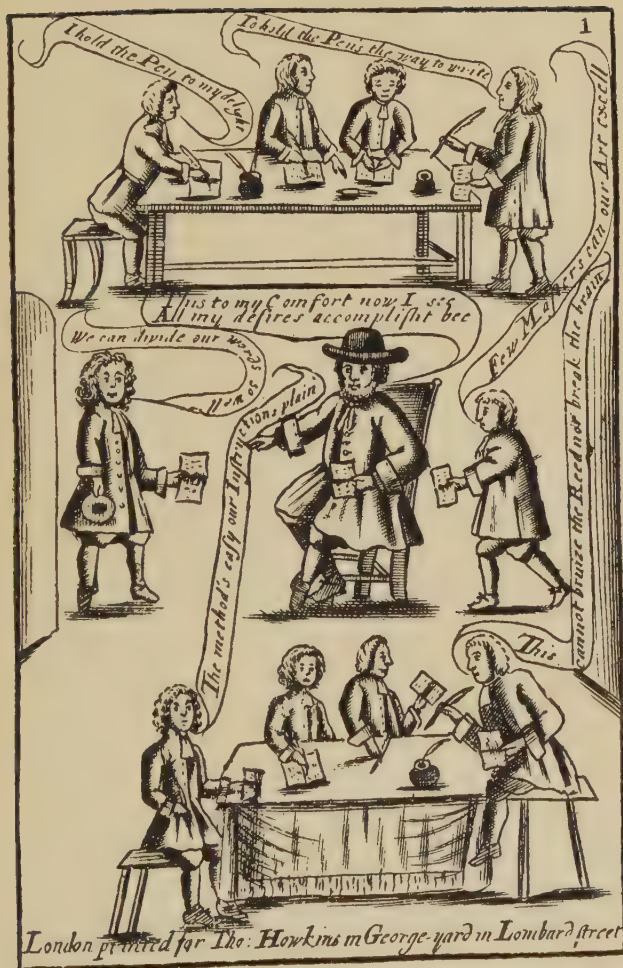 1
I hold the Pen to my delight
To hold the Pen's the way to write
Few Masters can our Art excell
We can divide our words
so well
Thus to my Comfort now I see
All my desires accomplisht bee
The method's easy our Instructions plain
This
cannot bruize the Reed nor break the brain
London printed for Tho: Howkins in George-yard in Lombard street